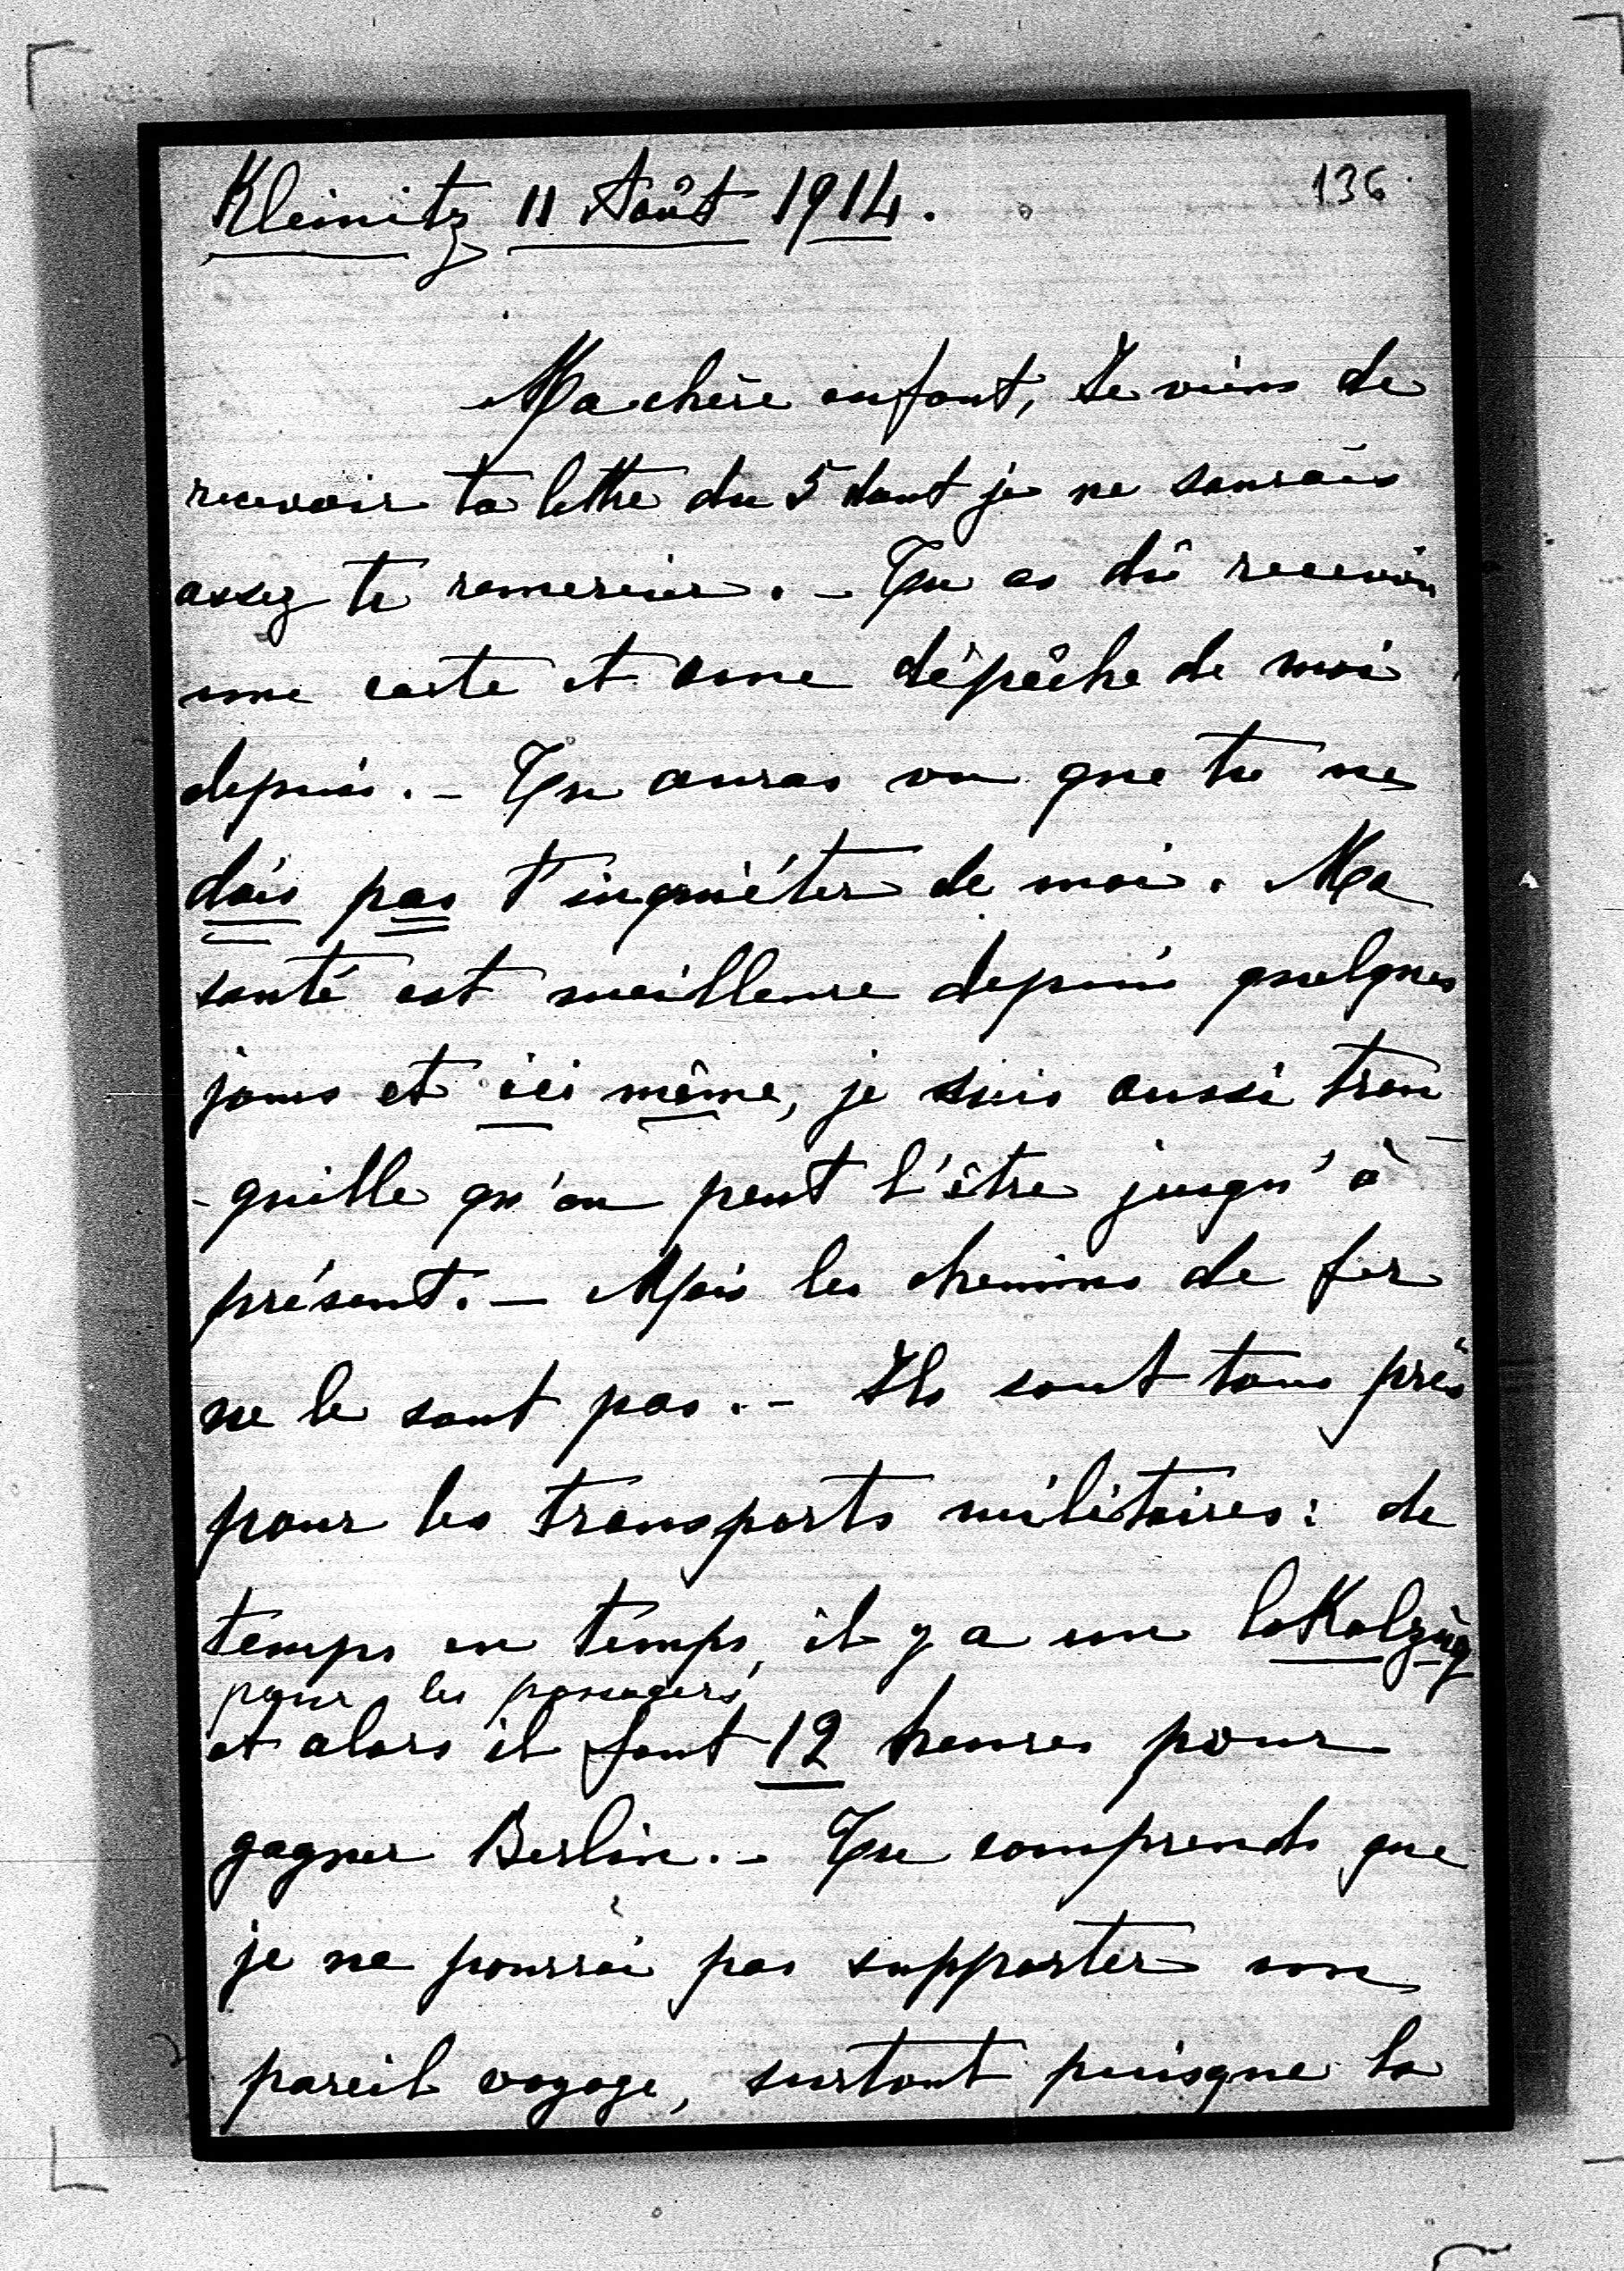 Kleinitz 11 Août 1914.
136
Ma chère enfant, Je viens de
recevoir ta lettre du 5 dont je ne saurais
assez te remercier. - Tu as dû recevoir
une carte et une dépêche de moi
depuis. - Tu auras vu que tu ne
dois pas t'inquiéter de moi. Ma
santé est meilleure depuis quelques
jours et ici même, je suis aussi tran
-quille qu'on peut l'être jusqu'à
présent. - Mais les chemins de fer
ne le sont pas. - Ils sont tous pris
pour les transports militaires : de
temps en temps, il y a un Lokalzüg
pour les passagers,
et alors il faut 12 heures pour
gagner Berlin. - Tu comprends que
je ne pourrai pas supporter un
pareil voyage, surtout puisque la